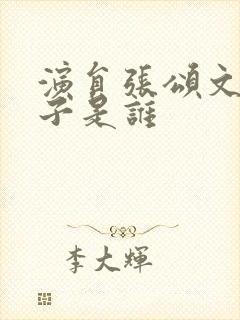 演員張頌文
子是誰
李大輝